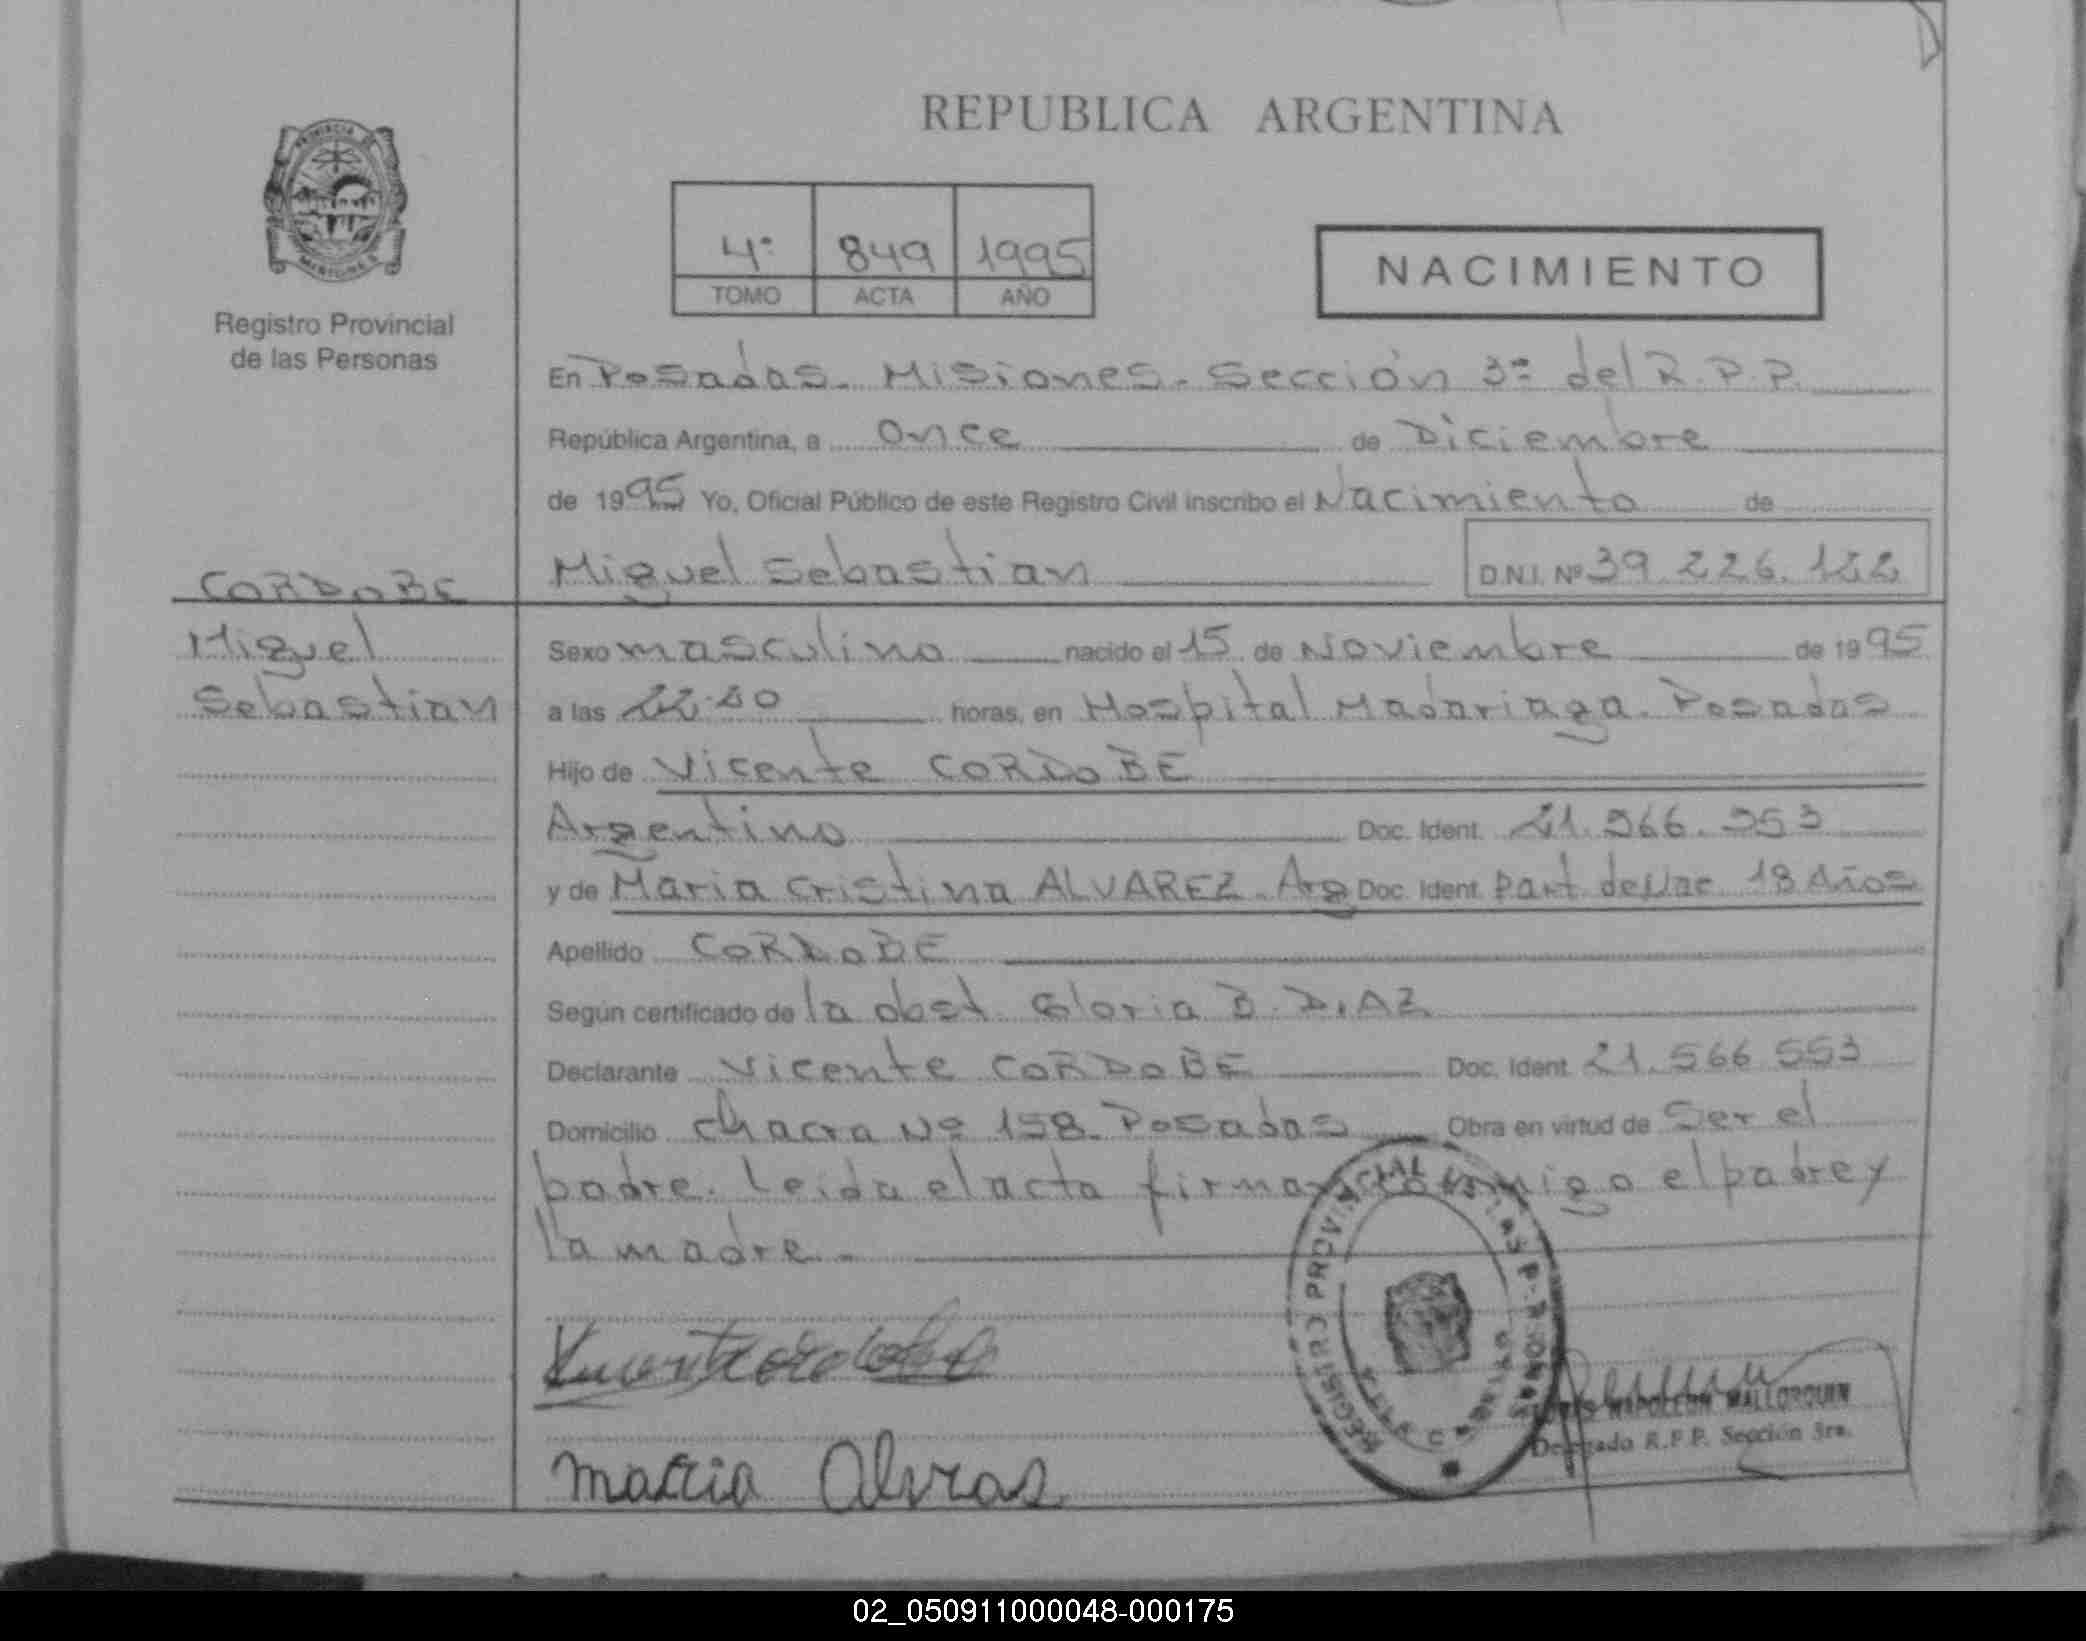 REPUBLICA ARGENTINA
PROVINCIA
MISIONES
Registro Provincial
de las Personas
4º 849 1995
TOMO ACTA AÑO
NACIMIENTO
En Posadas. Misiones. Sección 3ª del R.P.P.
República Argentina, a Once de Diciembre
de 1995 Yo, Oficial Público de este Registro Civil inscribo el Nacimiento de
Miguel Sebastian D.N.I. Nº 39.226.122
CORDOBE
Miguel
Sebastian
Sexo masculino nacido el 15 de Noviembre de 1995
a las horas, en Hospital Madariaga. Posadas
Hijo de Vicente CORDOBE
Argentino Doc. Ident. 21.566.553
y de Maria Cristina ALVAREZ. Arg Doc. Ident. part. de Nac 18 Años
Apellido CORDOBE
Según certificado de la obst. Gloria B. DIAZ
Declarante Vicente CORDOBE Doc. Ident. 21.566.553
Domicilio Chacra Nº 158. Posadas Obra en virtud de Ser el
padre. Leida el acta firman conmigo el padre y
la madre.
REGISTRO PROVINCIAL DE LAS PERSONAS
maria
NAPOLEON MALLORQUIN
Delegado R.P.P. Sección 3ra.
02_050911000048-000175